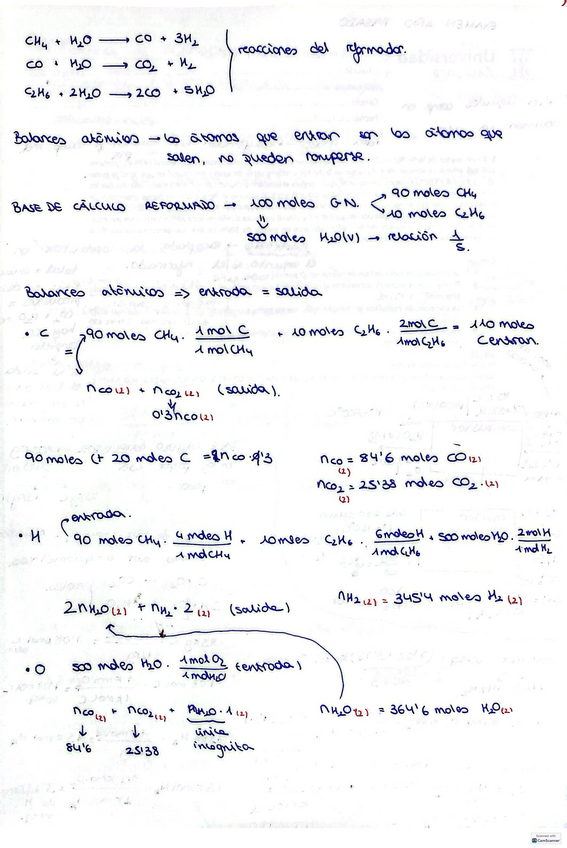 CH4 + H2O → CO + 3H2
CO + H2O → CO2 + H2
C2H6 + 2H2O → 2CO + 5H2O
reacciones del reformador.
Balances atómicos → los átomos que entran son los átomos que
salen, no pueden romperse.
BASE DE CÁLCULO REFORMADO → 100 moles G.N.
90 moles CH4
10 moles C2H6
500 moles H2O(v) → relación 1/5.
Balances atómicos => entrada = salida
• C = 90 moles CH4 · 1 mol C / 1 mol CH4 + 10 moles C2H6 · 2 mol C / 1 mol C2H6 = 110 moles
C entran.
nCO(2) + nCO2(2) (salida).
0'3 nCO(2)
90 moles C + 20 moles C = nCO · 1'3
nCO(2) = 84'6 moles CO(2)
nCO2(2) = 25'38 moles CO2.(2)
entrada.
• H 90 moles CH4 · 4 moles H / 1 mol CH4 + 10 moles C2H6 · 6 moles H / 1 mol C2H6 + 500 moles H2O · 2 mol H / 1 mol H2
nH2(2) = 345'4 moles H2(2)
2nH2O(2) + nH2 · 2(2) (salida)
• O 500 moles H2O · 1 mol O2 / 1 mol H2O (entrada)
nCO(2) + nCO2(2) + nH2O · 1(2)
nH2O(2) = 364'6 moles H2O(2)
84'6 25'38 única
incógnita
Scanned with
CamScanner